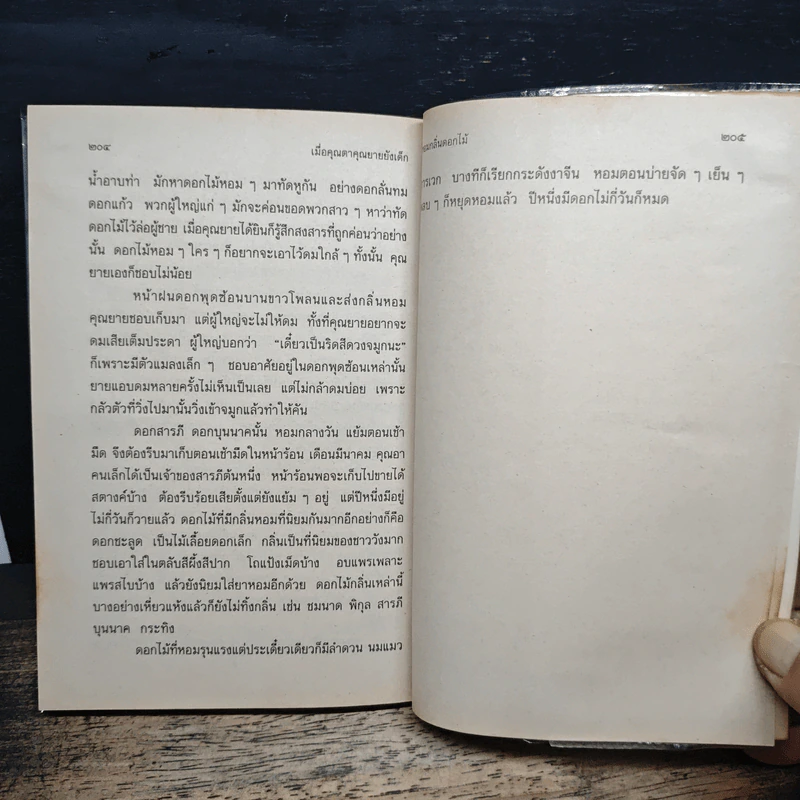 ๒๐๔
เมื่อคุณตาคุณยายยังเด็ก
น้ำอาบท่า มักหาดอกไม้หอม ๆ มาทัดหูกัน อย่างดอกลั่นทม
ดอกแก้ว พวกผู้ใหญ่แก่ ๆ มักจะค่อนขอดพวกสาว ๆ หาว่าทัด
ดอกไม้ไว้ล่อผู้ชาย เมื่อคุณยายได้ยินก็รู้สึกสงสารที่ถูกค่อนว่าอย่าง
นั้น ดอกไม้หอม ๆ ใคร ๆ ก็อยากจะเอาไว้ดมใกล้ ๆ ทั้งนั้น คุณ
ยายเองก็ชอบไม่น้อย
หน้าฝนดอกพุดซ้อนบานขาวโพลนและส่งกลิ่นหอม
คุณยายชอบเก็บมา แต่ผู้ใหญ่จะไม่ให้ดม ทั้งที่คุณยายอยากจะ
ดมเสียเต็มประดา ผู้ใหญ่บอกว่า “เดี๋ยวเป็นริดสีดวงจมูกนะ”
ก็เพราะมีตัวแมลงเล็ก ๆ ชอบอาศัยอยู่ในดอกพุดซ้อนเหล่านั้น
ยายแอบดมหลายครั้งไม่เห็นเป็นเลย แต่ไม่กล้าดมบ่อย เพราะ
กลัวตัวที่วิ่งไปมานั้นวิ่งเข้าจมูกแล้วทำให้คัน
ดอกสารภี ดอกบุนนาคนั้น หอมกลางวัน แย้มตอนเช้า
มืด จึงต้องรีบมาเก็บตอนเช้ามืดในหน้าร้อน เดือนมีนาคม คุณอา
คนเล็กได้เป็นเจ้าของสารภีต้นหนึ่ง หน้าร้อนพอจะเก็บไปขายได้
สตางค์บ้าง ต้องรีบร้อยเสียตั้งแต่ยังแย้ม ๆ อยู่ แต่ปีหนึ่งมีอยู่
ไม่กี่วันก็วายแล้ว ดอกไม้ที่มีกลิ่นหอมที่นิยมกันมากอีกอย่างก็คือ
ดอกชะลูด เป็นไม้เลื้อยดอกเล็ก กลิ่นเป็นที่นิยมของชาววังมาก
ชอบเอาใส่ในตลับสีผึ้งสีปาก โถแป้งเม็ดบ้าง อบแพรเพลาะ
แพรสไบบ้าง แล้วยังนิยมใส่ยาหอมอีกด้วย ดอกไม้กลิ่นเหล่านี้
บางอย่างเหี่ยวแห้งแล้วก็ยังไม่ทิ้งกลิ่น เช่น ชมนาด พิกุล สารภี
บุนนาค กระทิง
ดอกไม้ที่หอมรุนแรงแต่ประเดี๋ยวเดียวก็มีลำดวน นมแมว
กลิ่นดอกไม้
๒๐๕
การเวก บางทีก็เรียกกระดังงาจีน หอมตอนบ่ายจัด ๆ เย็น ๆ
ๆ ก็หยุดหอมแล้ว ปีหนึ่งมีดอกไม่กี่วันก็หมด